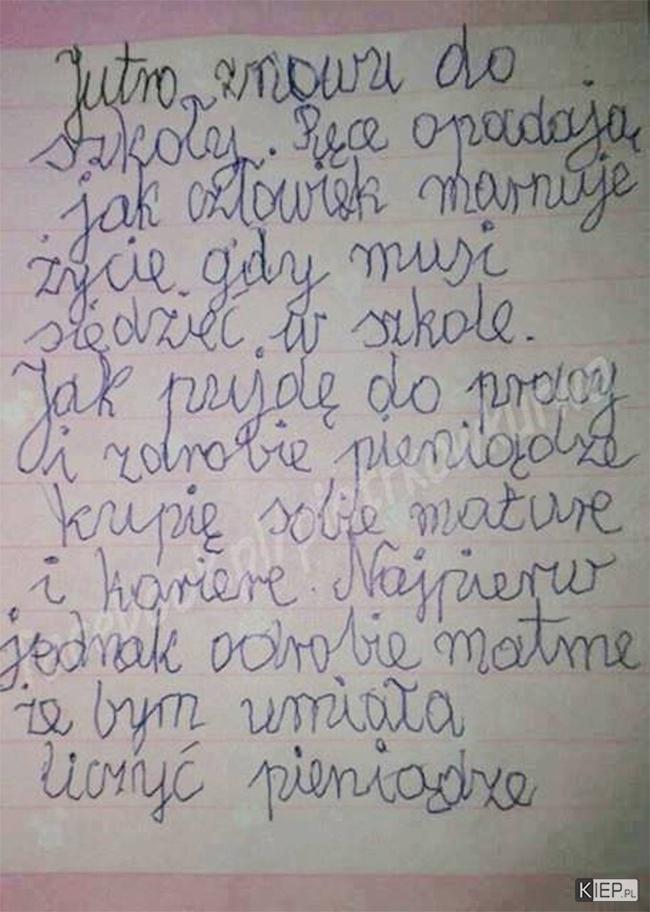 Jutro znowu do
szkoły. Ręce opadają
jak człowiek marnuje
życie gdy musi
siędzieć w szkole.
Jak pujdę do pracy
i zdrobie pieniądze
kupię sobie mature
i kariere. Najpierw
jednak odrobie matme
że bym umiała
liczyć pieniądze
KIEP.PL